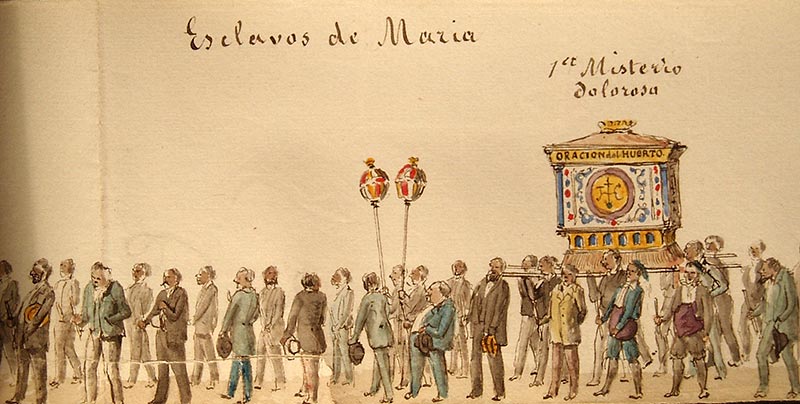 Esclavos de Maria
1er Misterio
Dolorosa
ORACION del HUERTO